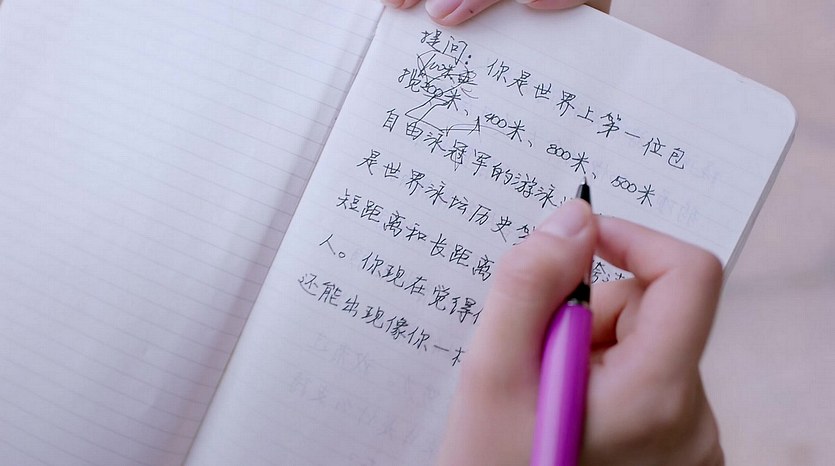 提问：你是世界上第一位包
揽200米、400米、800米、500米
自由泳冠军的游泳
是世界泳坛历史
短距离和长距离
人。你现在觉得
还能出现像你一